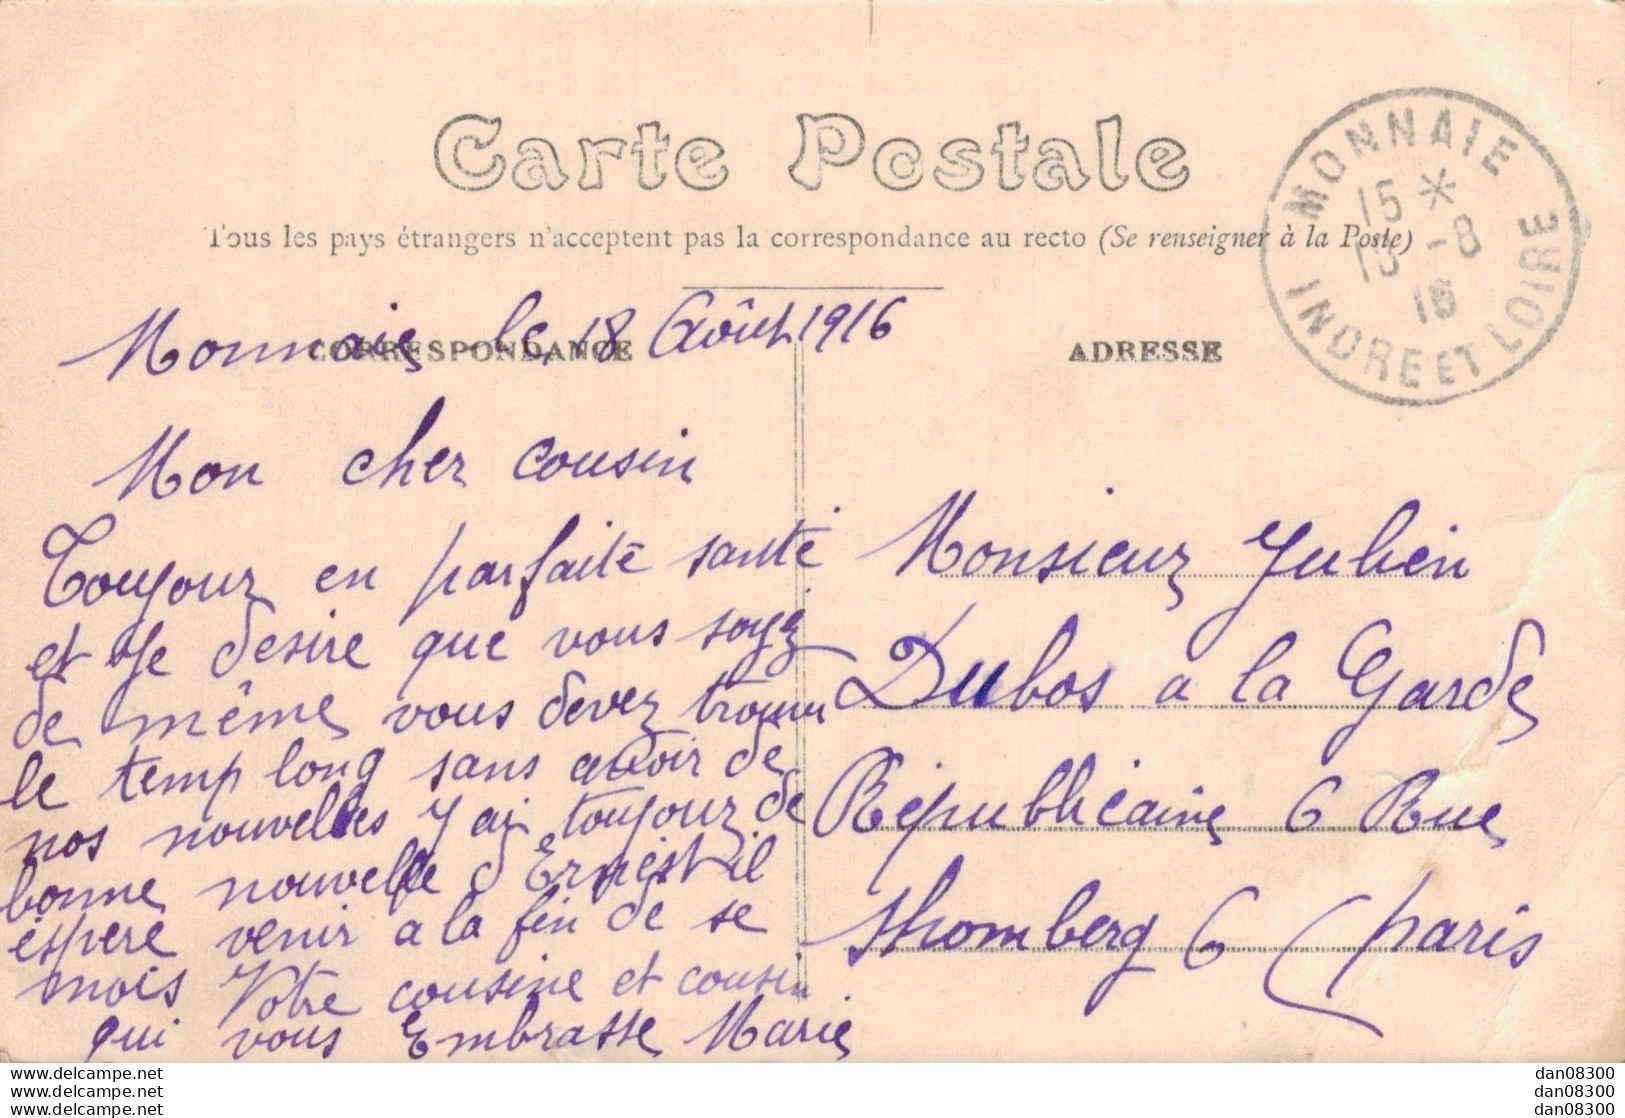 Carte Postale
Tous les pays étrangers n'acceptent pas la correspondance au recto (Se renseigner à la Poste)
CORRESPONDANCE
ADRESSE
MONNAIE
15 *
-8
16
INDRE ET LOIRE
Monnaie le 18 Août 1916
Mon cher cousin
Toujour en parfaite santé
et Je desire que vous soyez
de même vous devez trouver
le temp long sans avoir de
nos nouvelles J ai toujour de
bonne nouvelle d Ernest il
espere venir a la fin de se
mois Votre cousine et cousin
qui vous Embrasse Marie
Monsieur Julien
Dubos a la Garde
Républicaine 6 Rue
Shomberg 6 (Paris
dan08300
dan08300
dan08300
www.delcampe.net
www.delcampe.net
www.delcampe.net